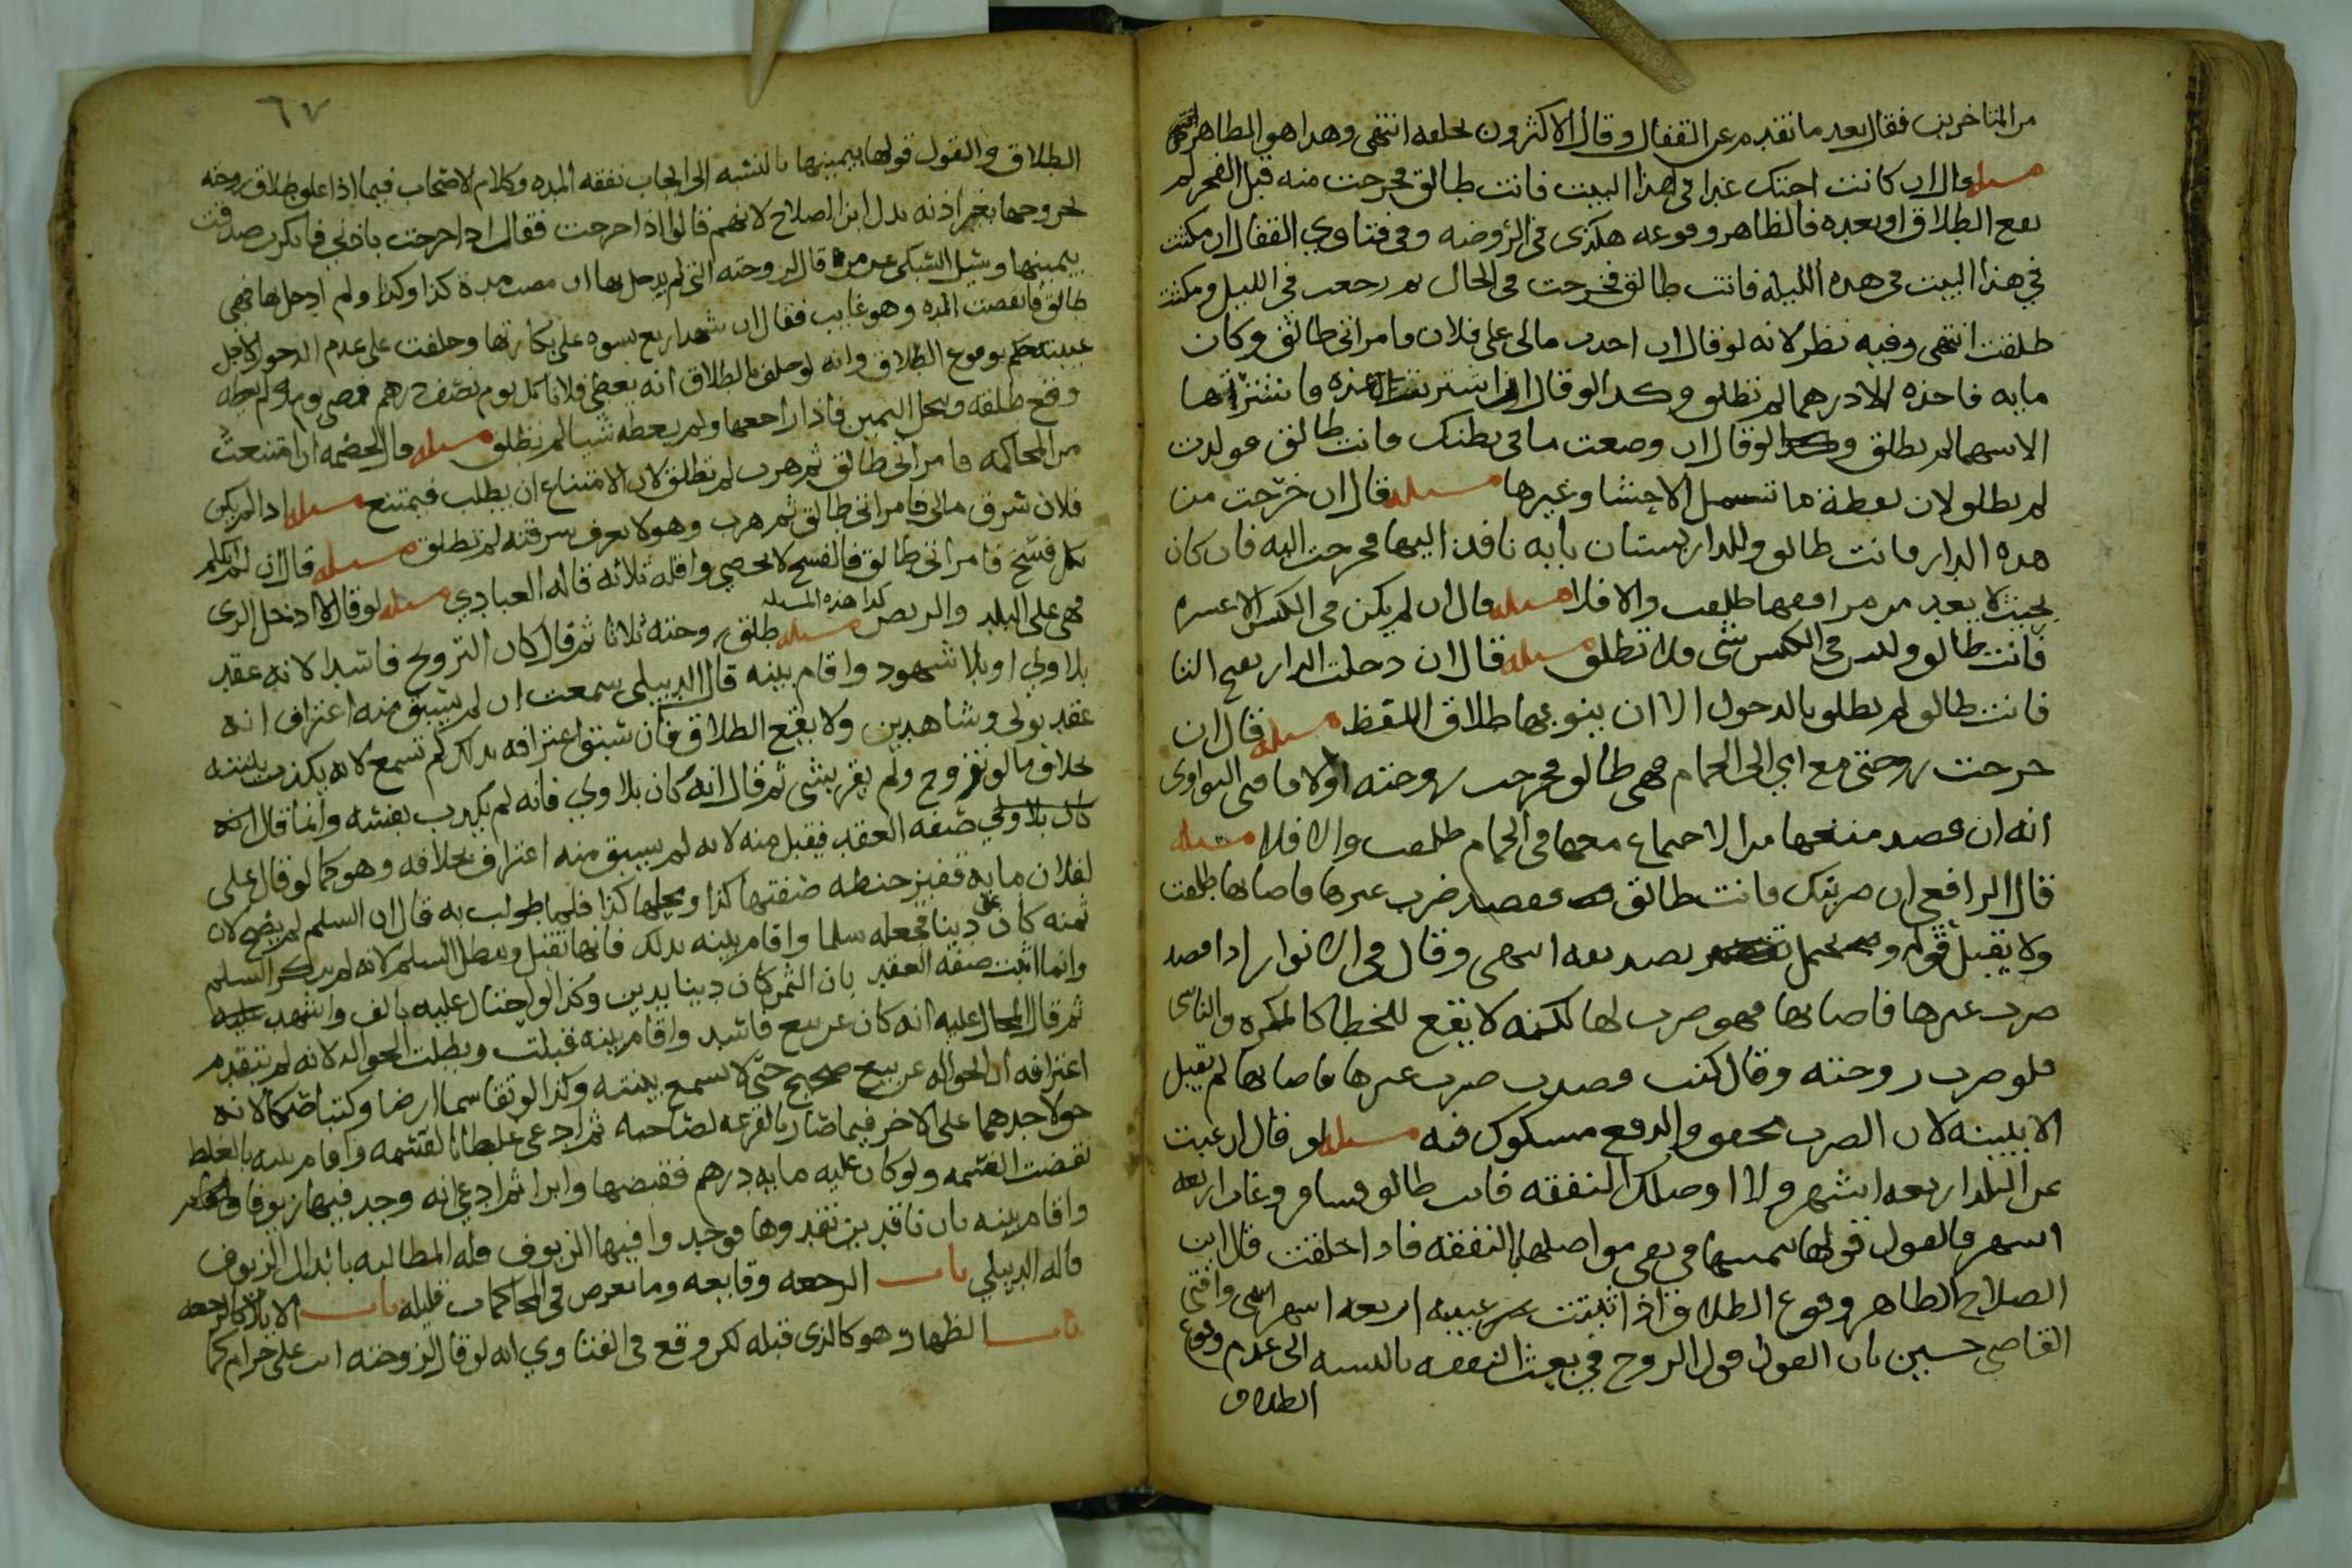 من المتاخرين فقال بعد ما تقدم عن القفال وقال الاكثرون بخلعه انتهى وهذا هو الظاهر
مسله قال ان كانت اختك غدا في هذا البيت فانت طالق فخرجت منه قبل الفجر لم
يقع الطلاق او بعده فالظاهر وقوعه هكذى في الروضه وفي فتاوي القفال ان مكثت
في هذا البيت في هذه الليله فانت طالق فخرجت في الحال ثم رجعت في الليل ومكثت
طلقت انتهى وفيه نظر لانه لو قال ان اخذت مالى على فلان فامراتى طالق وكان
مايه فاخذه الا درهما لم تطلق وكذا لو قال ان اشتريت فانت
الا سهما لم تطلق ولو قال ان وضعت ما في بطنك فانت طالق فولدت
لم تطلق لان لفظة ما تشمل الاحشا وغيرها مسله قال ان خرجت من
هذه الدار فانت طالق وللدار بستان بابه نافذ اليها فخرجت اليه فان كان
بحيث لا يعد من مرافقها طلقت والا فلا مسله قال ان لم يكن في الكيس الا عشره
فانت طالق وليس في الكيس شى فلا تطلق مسله قال ان دخلت الدار بفتح التا
فانت طالق لم تطلق بالدخول الا ان ينوى بها طلاق اللفظ مسله قال ان
خرجت زوجتى مع ابي الى الحمام فهى طالق فخرجت زوجته اولا فافتى النواوى
انه ان قصد منعها من الاجتماع معها في الحمام طلقت والا فلا مسله
قال الرافعى ان ضربتك فانت طالق فقصد ضرب غيرها فاصابها طلقت
ولا يقبل قوله ويحتمل تصديقه انتهى وقال في الانوار اذا قصد
ضرب غيرها فاصابها فهو ضرب لها لكنه لا يقع للخطا كالمكره والناسى
فلو ضرب زوجته وقال كنت قصدت ضرب غيرها فاصابها لم يقبل
الا ببينه لان الضرب محقق والدفع مشكوك فيه مسله لو قال ان غبت
عن البلد اربعه اشهر ولا اوصلك النفقه فانت طالق فسافر وغاب اربعه
اشهر فالقول قولها بيمينها في نفي مواصلها النفقه فاذا حلفت قال ابن
الصلاح الظاهر وقوع الطلاق اذا ثبتت غيبته اربعه اشهر انتهى وافتى
القاضى حسين بان القول قول الزوج في بعث النفقه بالنسبه الى عدم وقوع
الطلاق
٦٧
الطلاق والقول قولها بيمينها بالنسبه الى ايجاب نفقه المده وكلام الاصحاب فيما اذا علق طلاق زوجته
لخروجها بغير اذنه يدل لابن الصلاح لانهم قالوا اذا خرجت فقال اذا خرجت باذني فانكرت صدقت
بيمينها وسيل السبكى عمن قال لزوجته التى لم يدخل بها ان مضت مدة كذا وكذا ولم ادخل بها فهى
طالق فانقضت المده وهو غايب فقال ان شهد اربع نسوه على بكارتها وحلفت على عدم الدخول لاجل
غيبته حكم بوقوع الطلاق وانه لو حلف بالطلاق انه يعطى فلانا كل يوم نصف درهم فمضى يوم ولم يعطه
وقع طلقه وينحل اليمين فاذا راجعها ولم يعطه شيا لم تطلق مسله قال لخصمه ان امتنعت
من المحاكمه فامراتى طالق ثم هرب لم تطلق لان الامتناع ان يطلب فيمتنع مسله اذا لم يكن
فلان سرق مالى فامراتى طالق ثم هرب وهو لا يعرف سرقته لم تطلق مسله قال ان لم اكلم
كل فسيح فامراتى طالق فالفسح لا يحصي واقله ثلاثه قاله العبادي مسله لو قال لا ادخل الرى
فهى على البلد والربض كذا هذه المسله مسله طلق زوجته ثلاثا ثم قال كان التزويج فاسدا لانه عقد
بلا ولي او بلا شهود واقام بينه قال الدبيلى سمعت ان لم يسبق منه اعتراف انه
عقد بولى وشاهدين ولا يقع الطلاق فان سبق اعترافه بذلك لم تسمع لانه يكذب بينته
بخلاف ما لو تزوج ولم يقر بشى ثم قال انه كان بلا ولي فانه لم يكذب نفسه وانما قال انه
كان بلا ولي صفه العقد فيقبل منه لانه لم يسبق منه اعتراف بخلافه وهو كما لو قال على
لفلان مايه قفيز حنطه صفتها كذا ومحلها كذا فلما طولب به قال ان السلم لم يصح لان
ثمنه كان على دينا فجعله سلما واقام بينه بذلك فانها تقبل ويبطل السلم لانه لم يذكر السلم
وانما اثبت صفه العقد بان الثمن كان دينا بدين وكذا لو احتال عليه بالف واشهد عليه
ثم قال المحال عليه انه كان عن بيع فاسد واقام بينه قبلت وبطلت الحواله لانه لم يتقدم
اعترافه ان الحواله عن بيع صحيح حتى لا تسمع بينته وكذا لو تقاسما ارضا وكتبا صكا لانه
حق لاحدهما على الاخر فيما صار بالقرعه لصاحبه ثم ادعى غلطا بالقسمه واقام بينه بالغلط
نقضت القسمه ولو كان عليه مايه درهم فقبضها وابرا ثم ادعى انه وجد فيها زيوفا
واقام بينه بان ناقدين نقدوها فوجدوا فيها الزيوف فله المطالبه بابدال الزيوف
قاله الدبيلي باب الرجعه وقايعه وما تعرض في المحاكمات قليله باب الايلا كالرجعه
باب الظهار وهو كالذى قبله لكن وقع في الفتاوي انه لو قال لزوجته انت على حرام كما